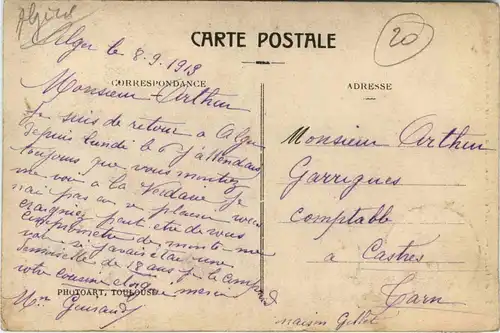 Algérie
Alger le 8.9.1913
CARTE POSTALE
20
CORRESPONDANCE
Monsieur Arthur
Je suis de retour a Alger
depuis lundi le 6 j'attendais
toujours que vous montiez
me voir a la
n'ai pas eu ce plaisir vous
craigniez peut etre de vous
compromettre de monter me
voir si j'avais été une
demoiselle de 18 ans je le comprends
votre cousine
Mme Guiraud
PHOTOART, TOULOUSE
ADRESSE
Monsieur Arthur
Garrigues
comptable
a Castres
Tarn
maison